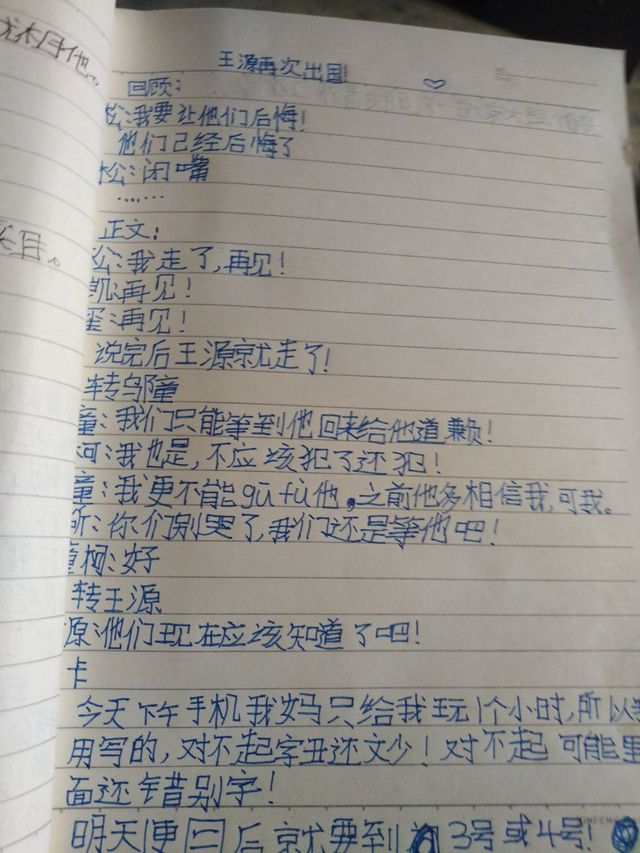 王源再次出国!
回顾:
松:我要让他们后悔!
他们已经后悔了
松:闭嘴
……
正文:
公:我走了,再见!
凯:再见!
玺:再见!
说完后王源就走了!
转邬童
童:我们只能等到他回来给他道歉!
柯:我也是,不应该犯了还犯!
童:我更不能gū fù他,之前他多相信我,可我。
忻:你们别哭了,我们还是等他吧!
童柯:好
转王源
源:他们现在应该知道了吧!
卡
今天下午手机我妈只给我玩1个小时,所以
用写的,对不起字丑还文少!对不起可能里
面还错别字!
明天更二后就要到 3号或4号!